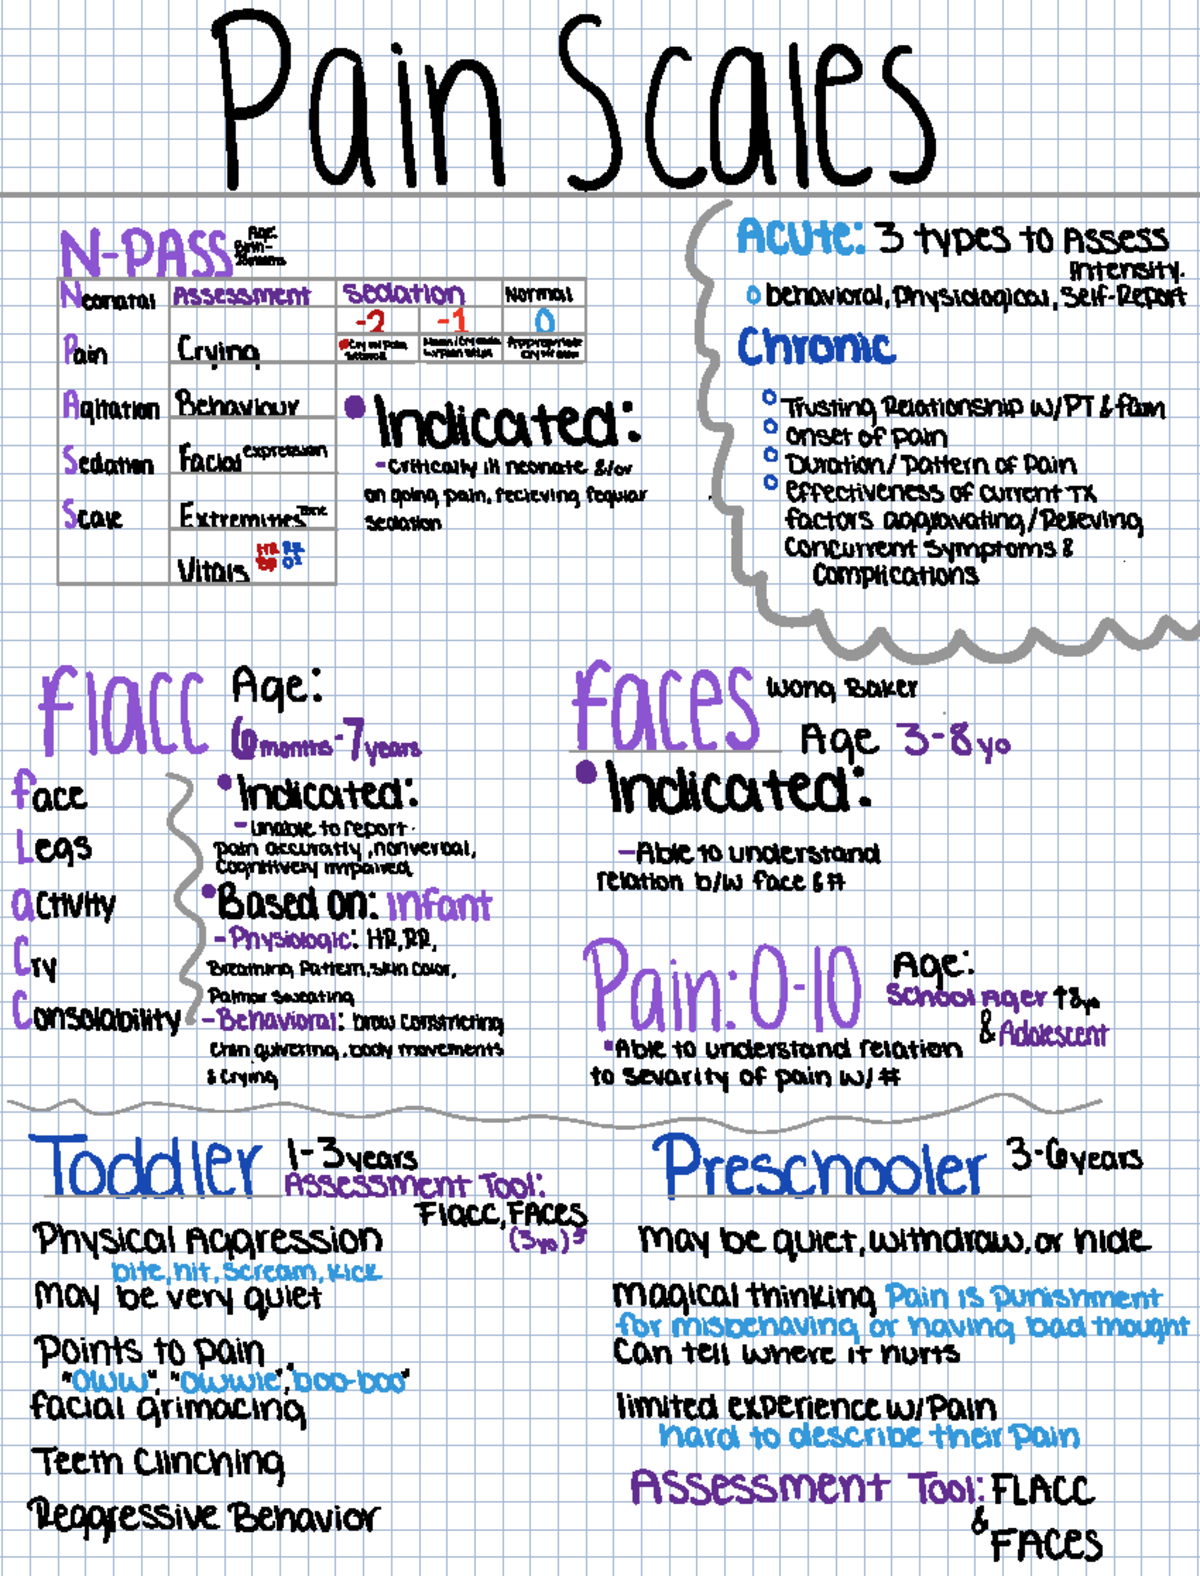 Pain Scales
N-PASS Age:
Neonatal Assessment Sedation Normal
-2 -1 0
Pain Crying
Agitation Behaviour
Sedation Facial expression
Scale Extremities Tone
Vitals HR RR BP O2
• Indicated:
- Critically ill neonate &/or
on going pain, recieving regular
Sedation
Acute: 3 types to Assess
Intensity.
behavioral, physiological, Self-Report
Chronic
Trusting Relationship w/PT & fam
onset of pain
Duration/Pattern of Pain
effectiveness of current TX
factors aggravating/Relieving,
Concurrent symptoms &
Complications
flacc Age:
6 months - 7 years
face
Legs
activity
Cry
Consolability
• Indicated:
- Unable to report
pain accuratly, nonverbal,
Cognitively impaired,
• Based on: infant
- Physiologic: HR, RR,
Breathing Pattern, skin color,
Palmar sweating
- Behavioral: brow constricting
Chin quivering, body movements
& crying
faces Wong Baker
Age 3-8 yo
• Indicated:
- Able to understand
relation b/w face & #
Pain: 0-10 Age:
School Ager ↑8yo
& Adolescent
• Able to understand relation
to sevarity of pain w/ #
Toddler 1-3 years
Assessment Tool:
Flacc, FACES
(3yo)
Physical Aggression
bite, hit, scream, kick
may be very quiet
Points to pain
"oww", "owwie", "boo-boo"
facial grimacing
Teeth Clinching
Reggressive Behavior
Preschooler 3-6 years
may be quiet, withdraw, or hide
magical thinking Pain is punishment
for misbehaving or having bad thought
Can tell where it hurts
limited experience w/Pain
hard to describe their pain
Assessment Tool: FLACC
&
FACES